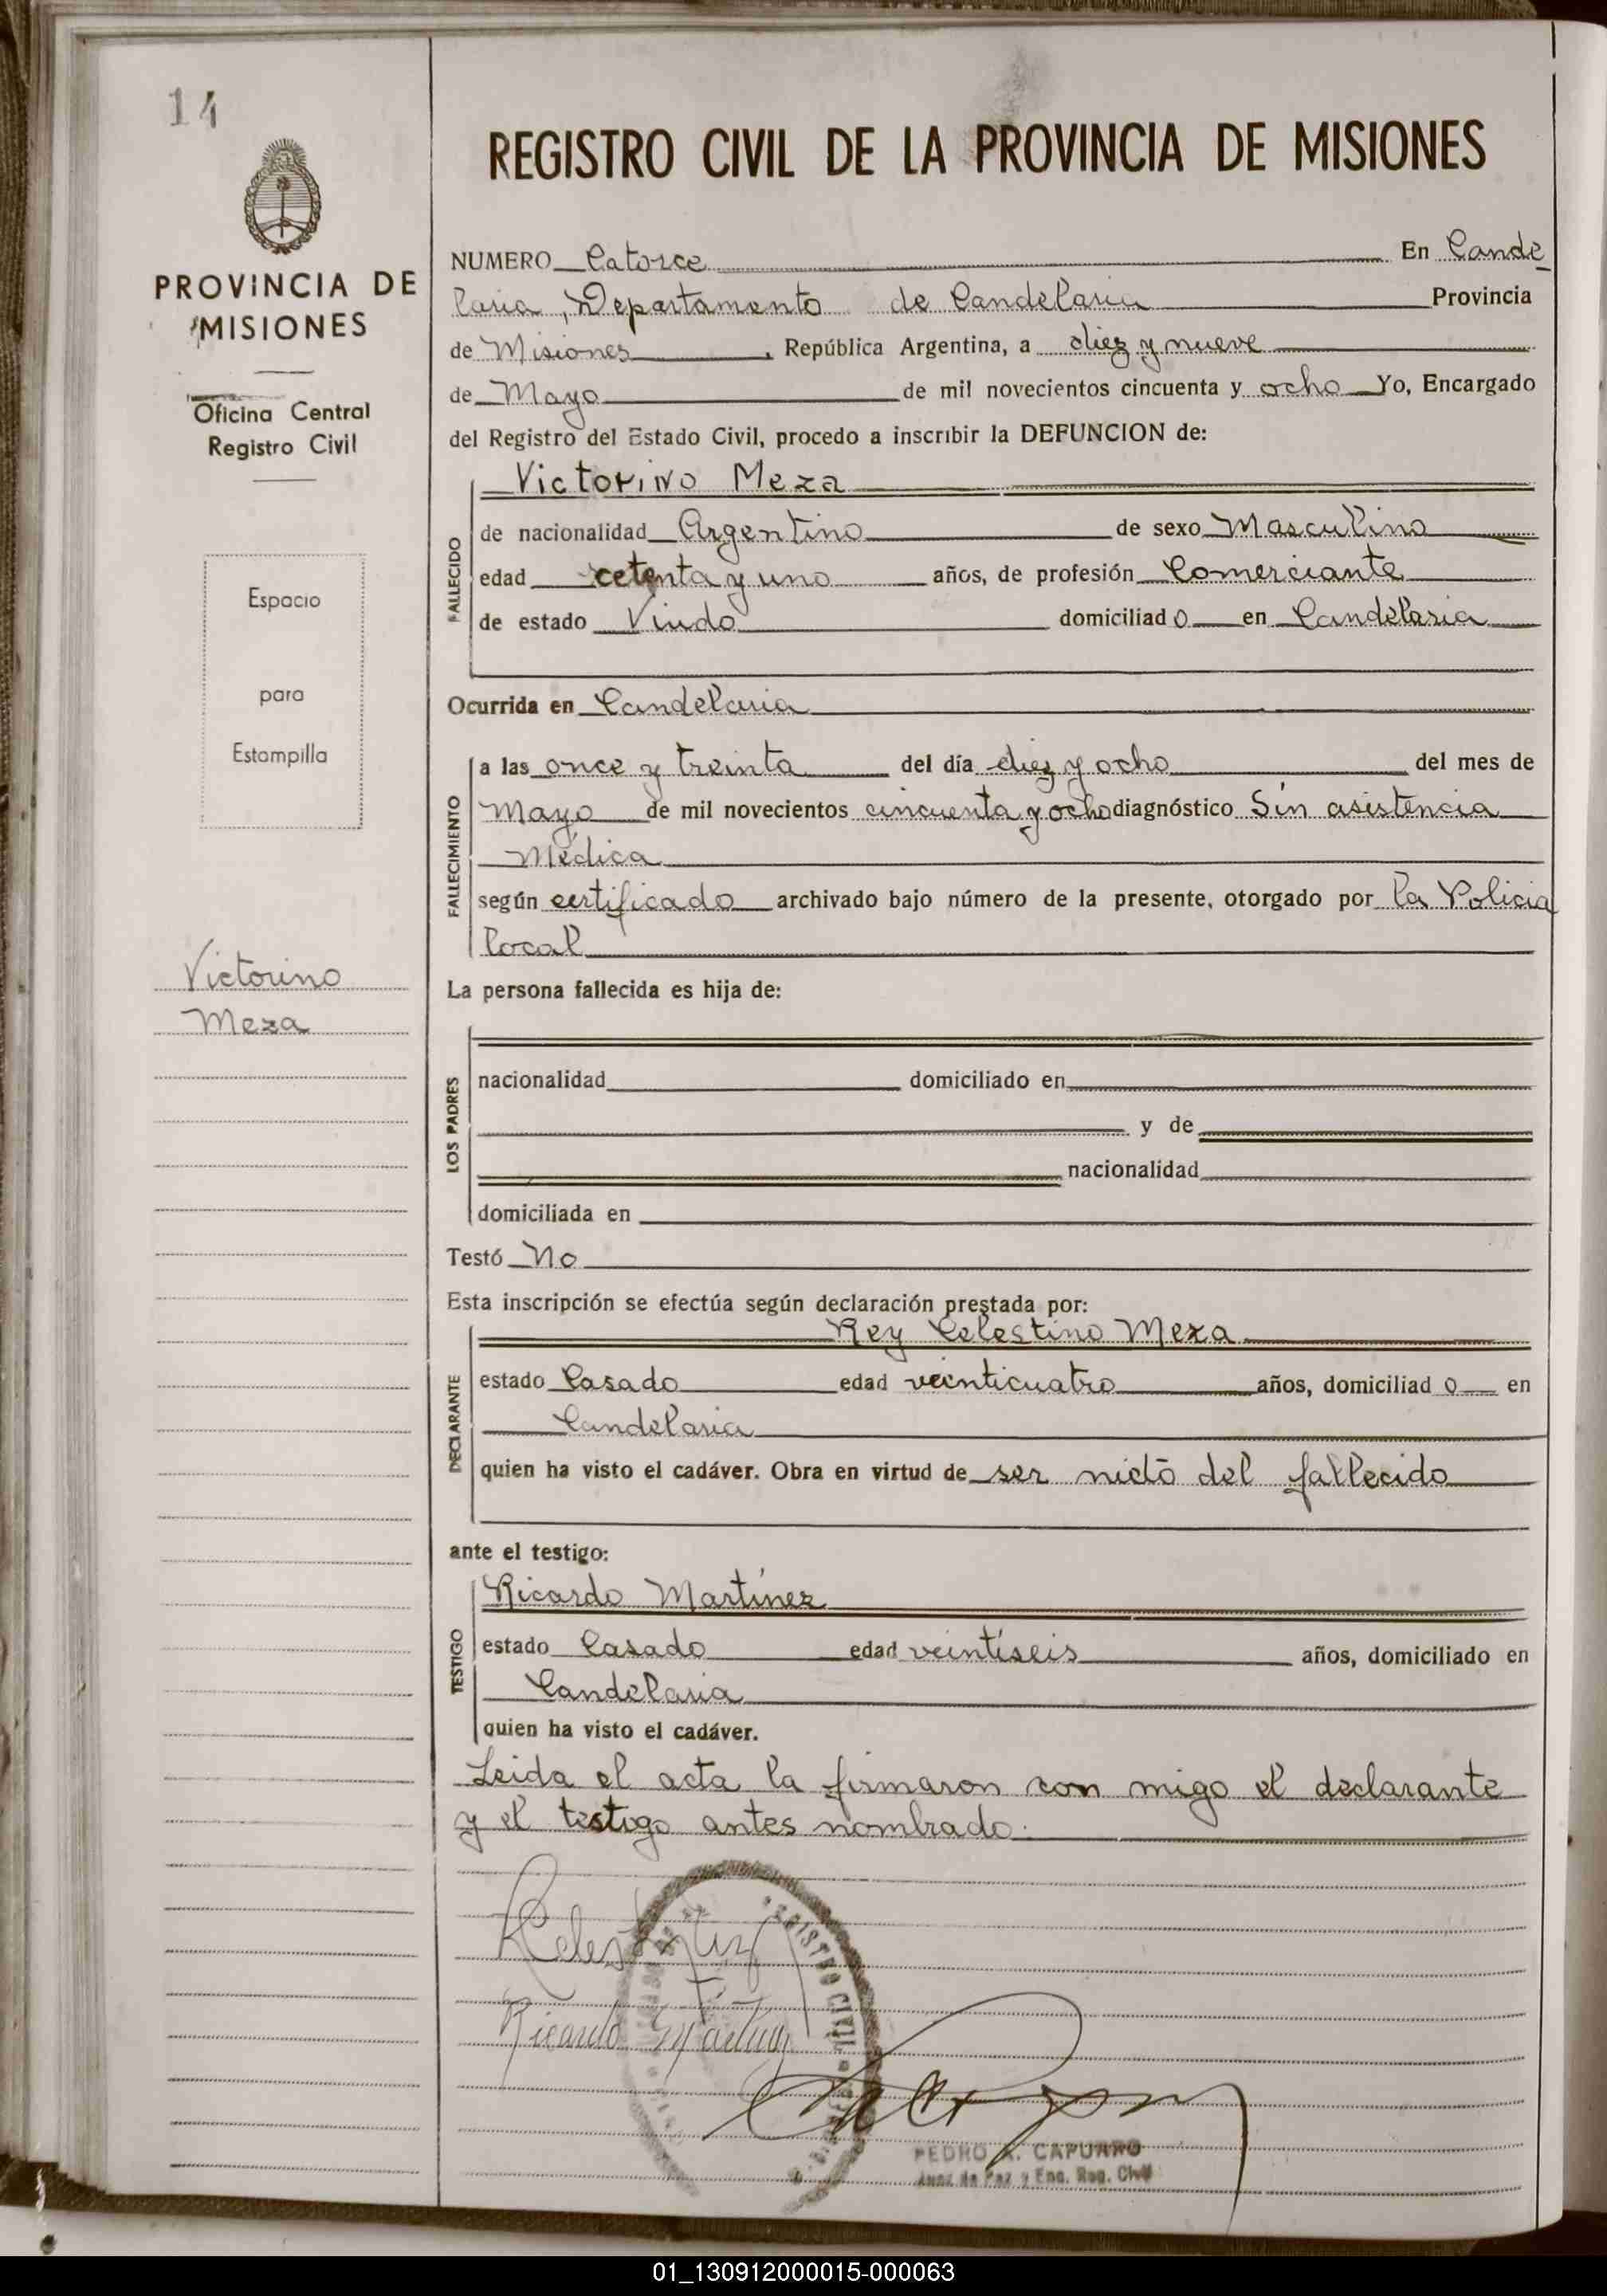 14
PROVINCIA DE
MISIONES
Oficina Central
Registro Civil
Espacio
para
Estampilla
Victorino
Meza
REGISTRO CIVIL DE LA PROVINCIA DE MISIONES
NUMERO Catorce En Cande
laria, Departamento de Candelaria Provincia
de Misiones, República Argentina, a diez y nueve
de Mayo de mil novecientos cincuenta y ocho Yo, Encargado
del Registro del Estado Civil, procedo a inscribir la DEFUNCION de:
FALLECIDO
Victorino Meza
de nacionalidad Argentino de sexo Masculino
edad cetenta y uno años, de profesión Comerciante
de estado Viudo domiciliado en Candelaria
Ocurrida en Candelaria
FALLECIMIENTO
a las once y treinta del día diez y ocho del mes de
Mayo de mil novecientos cincuenta y ocho diagnóstico Sin asistencia
Médica
según certificado archivado bajo número de la presente, otorgado por la Policia
local
La persona fallecida es hija de:
LOS PADRES
nacionalidad domiciliado en
y de
nacionalidad
domiciliada en
Testó No
Esta inscripción se efectúa según declaración prestada por:
DECLARANTE
Rey Celestino Meza
estado Casado edad veinticuatro años, domiciliado en
Candelaria
quien ha visto el cadáver. Obra en virtud de ser nieto del fallecido
ante el testigo:
TESTIGO
Ricardo Martínez
estado Casado edad veintiseis años, domiciliado en
Candelaria
quien ha visto el cadáver.
Leida el acta la firmaron con migo el declarante
y el testigo antes nombrado.
Ricardo Martinez
REGISTRO CIVIL
PEDRO A. CAPURRO
Juez de Paz y Enc. Reg. Civil
01_130912000015-000063